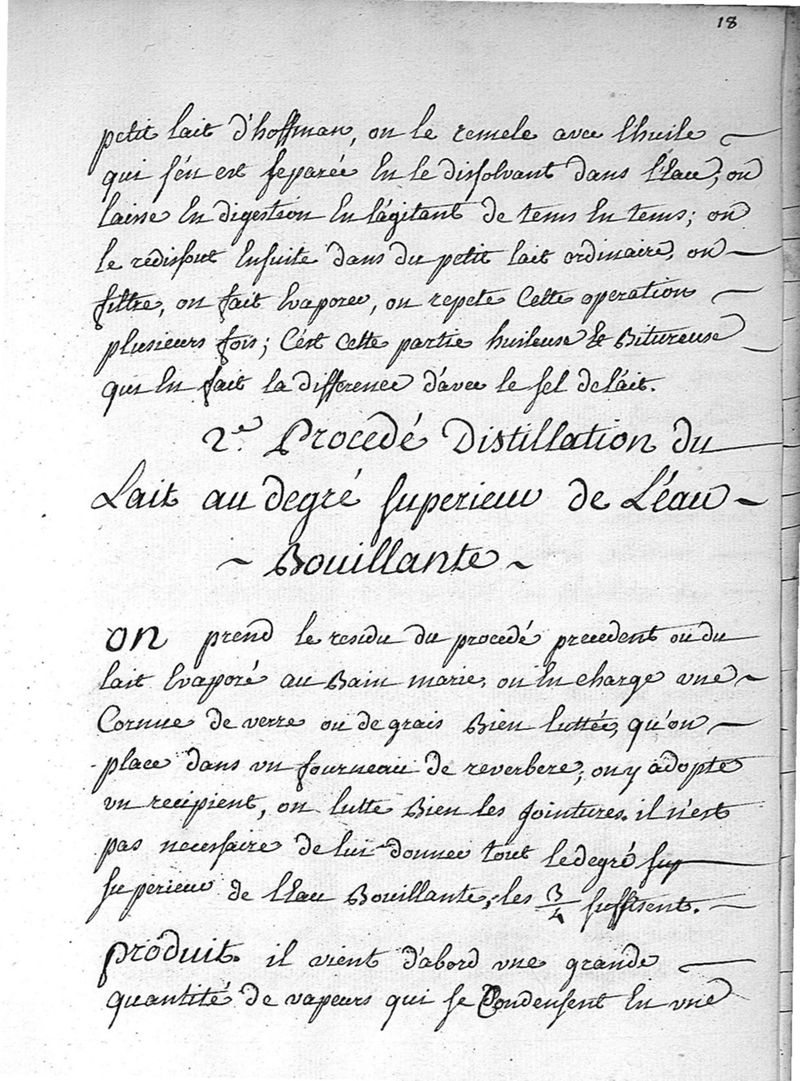 18
petit lait d'hoffman, on le remele avec l'huile
qui s'en est separée En le dissolvant dans l'Eau, on
laisse En digestion En l'agitant de tems En tems; on
le redissout Ensuite dans du petit lait ordinaire, on
filtre, on fait Evaporer, on repete Cette operation
plusieurs fois; C'est Cette partie huileuse & Bitureuse
qui En fait la difference d'avec le sel de lait.
2.e Procedé Distillation du
Lait au degré superieur de L'éau
~ Bouillante ~
on prend le residu du procedé precedent ou du
lait Evaporé au Bain marie, on En charge une
Cornue de verre ou de grais Bien luttée, qu'on
place dans un fourneau de reverbere; on y adopte
un recipient, on lutte Bien les Jointures. il n'est
pas necessaire de lui donner tout le degré sup
superieur de l'Eau Bouillante, les 3/4 suffisent.
produit. il vient d'abord une grande
quantité de vapeurs qui se Condensent En une